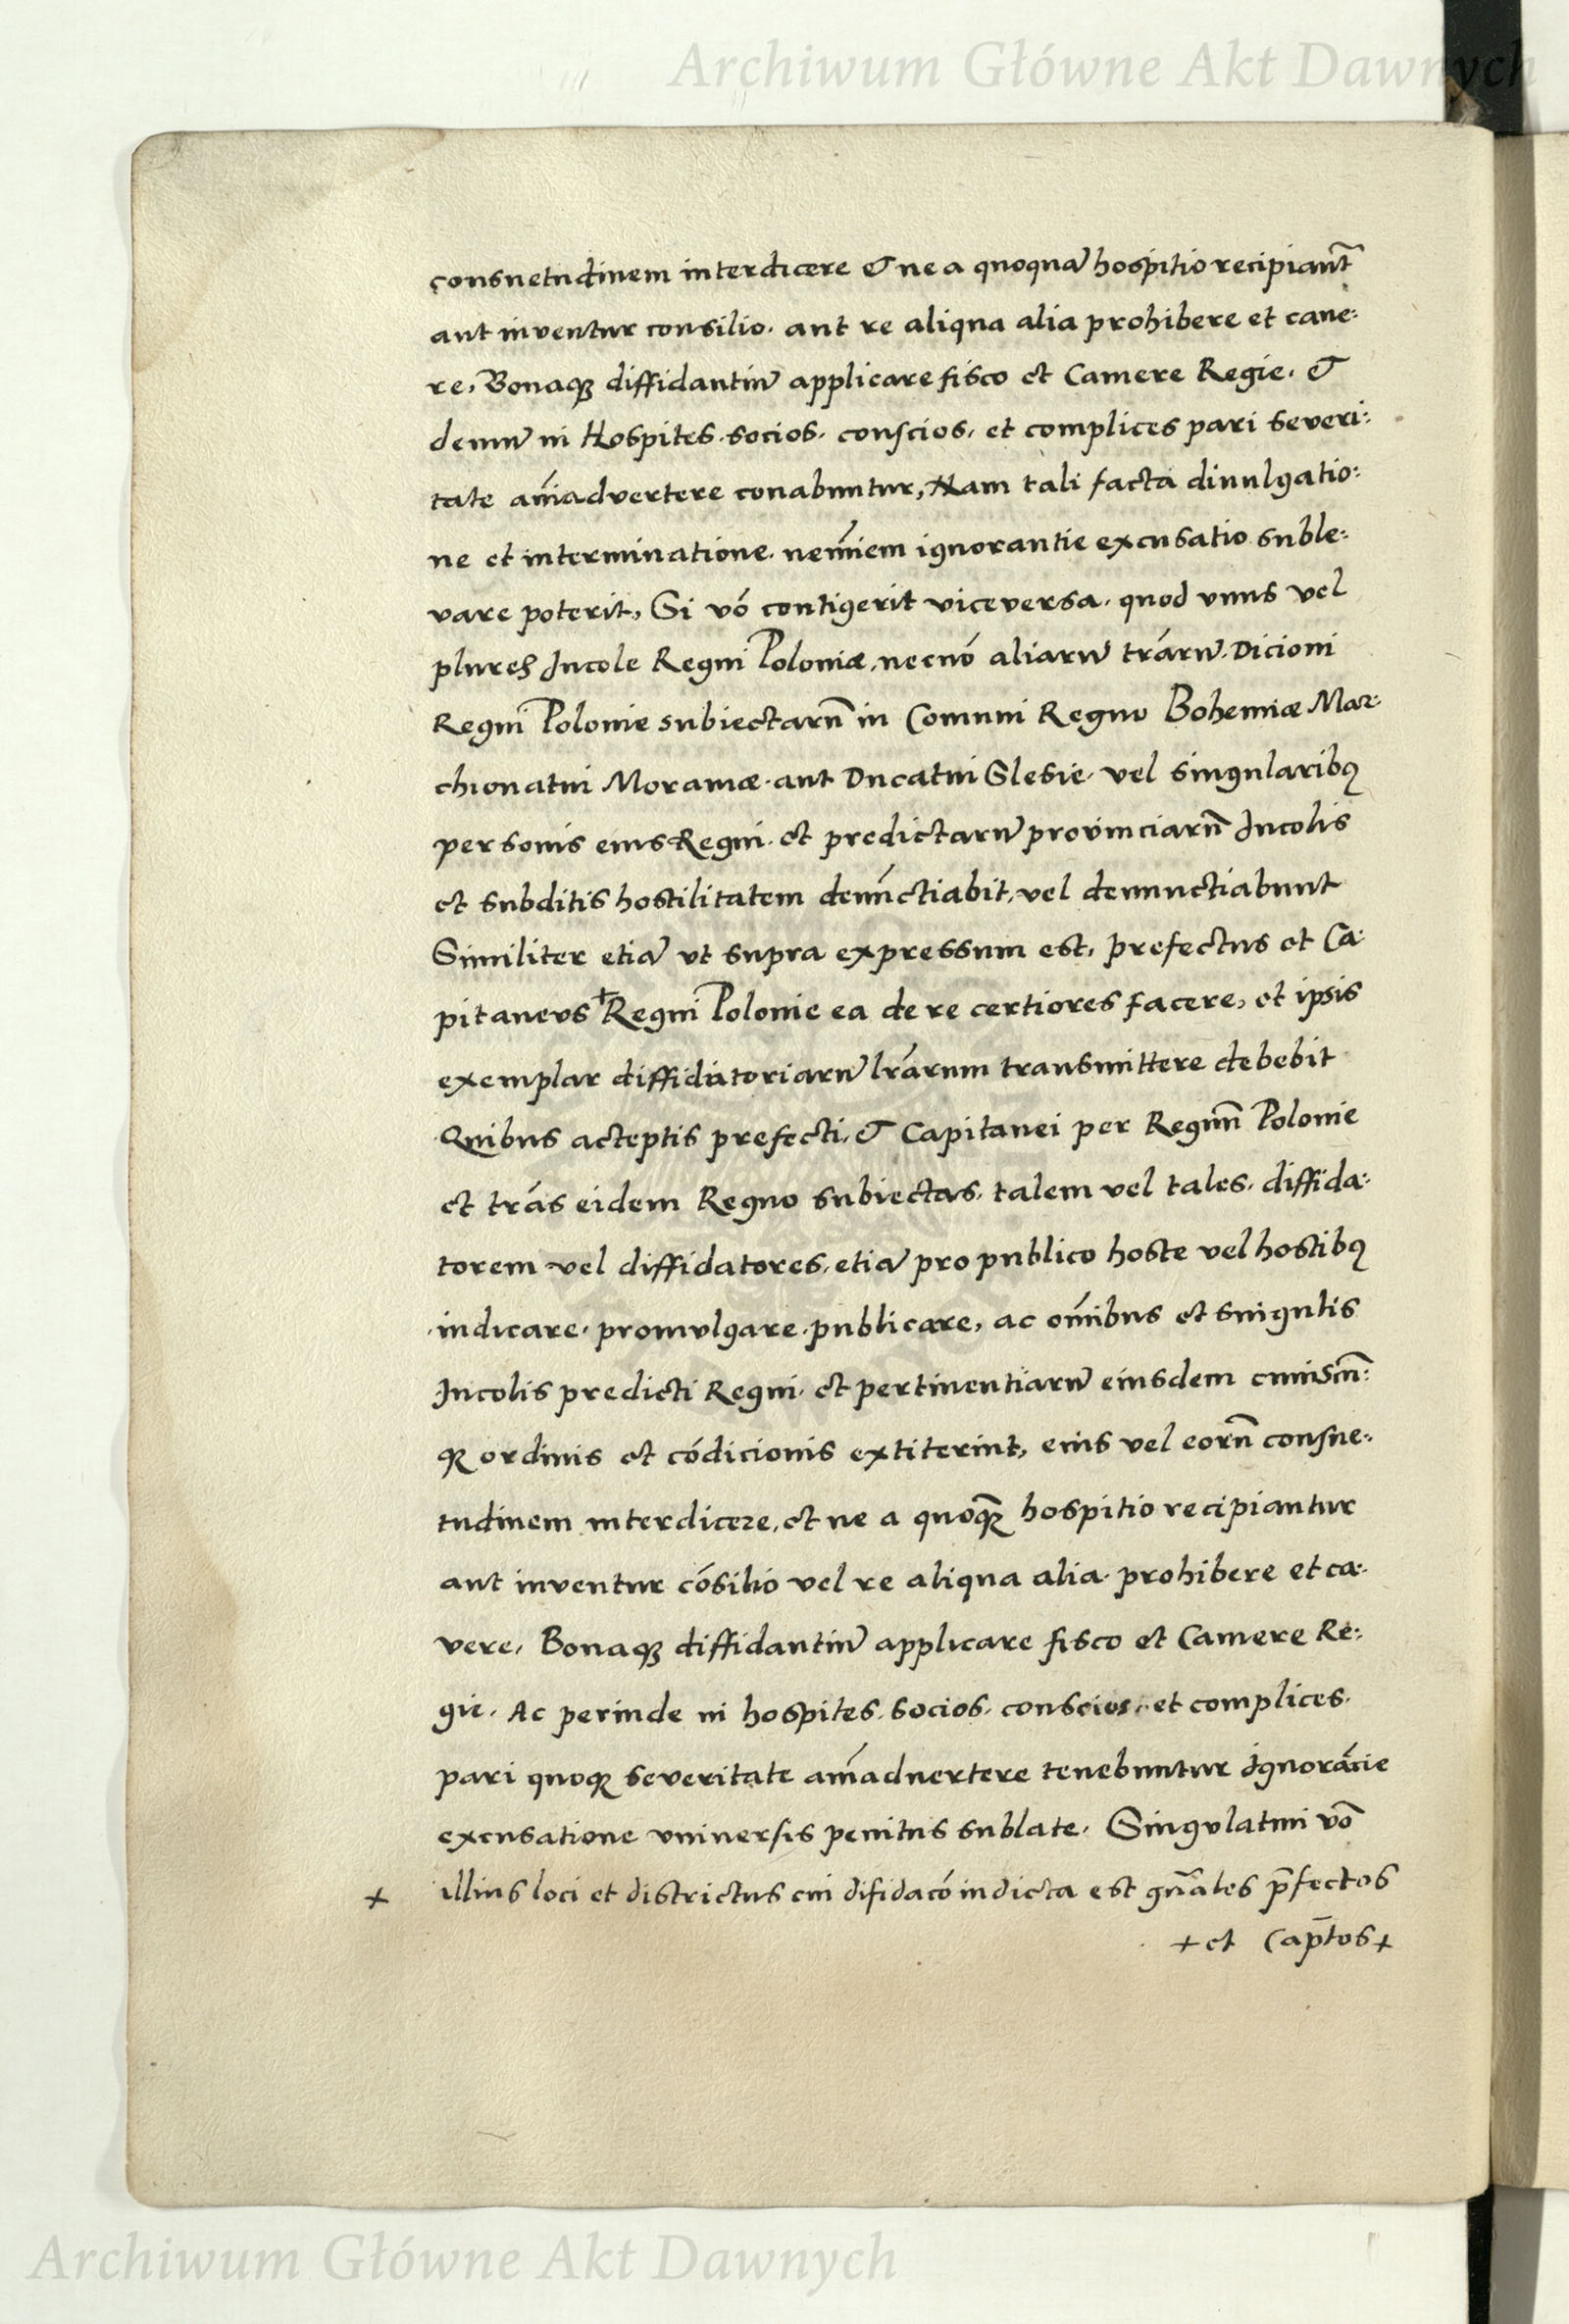 Archiwum Główne Akt Dawnych
consuetudinem interdicere & ne a quoquā hospitio recipiant̄
aut inventur consilio. aut re aliqua alia prohibere et cave:
re, Bonaqꝫ diffidantiū applicare fisco et Camere Regie. &
demū in Hospites. socios. conscios. et complices pari severi:
tate aīadvertere conabuntur, Nam tali facta divulgatio:
ne et interminatione. neminem ignorantie excusatio suble:
vare poterit, Si vó contigerit viceversa. quod vnus vel
plures Incole Regni Poloniæ, necnó aliarū trárū. Dicioni
Regni Polonie subiectarū in Comuni Regno Bohemiæ Mar:
chionatui Moraviæ. aut Ducatui Slesie. vel singularibꝰ
personis eius Regni. et predictarū provinciarū Incolis
et subditis hostilitatem denūctiabit, vel denunctiabunt
Similiter etiā vt supra expressum est, prefectus et Ca:
pitaneus + Regni Polonie ea de re certiores facere, et ipsis
exemplar diffidatoriarū lrárum transmittere debebit
Quibus acceptis prefecti, & Capitanei per Regnū Polonie
et trás eidem Regno subiectas. talem vel tales. diffida:
torem vel diffidatores. etiā pro publico hoste vel hostibꝰ
indicare. promulgare. publicare, ac oīnibus et singulis
Incolis predicti Regni. et pertinentiarū eiusdem cuiuscū:
qꝫ ordinis et códicionis extiterint, eius vel eorū consue:
tudinem interdicere, et ne a quoqꝫ̄ hospitio recipiantur
aut inventur cósilio vel re aliqua alia. prohibere et ca:
vere, Bonaqꝫ diffidantiū applicare fisco et Camere Re:
gie. Ac perinde in hospites. socios. conscios. et complices.
pari quoqꝫ severitate aīadvertere tenebuntur ignorácie
excusatione vniversis penitus sublate. Singulatim vō
+ illius loci et districtus cui difidacó indicta est gn̄ales p̄fectos
+ et Cap̄tos +
Archiwum Główne Akt Dawnych